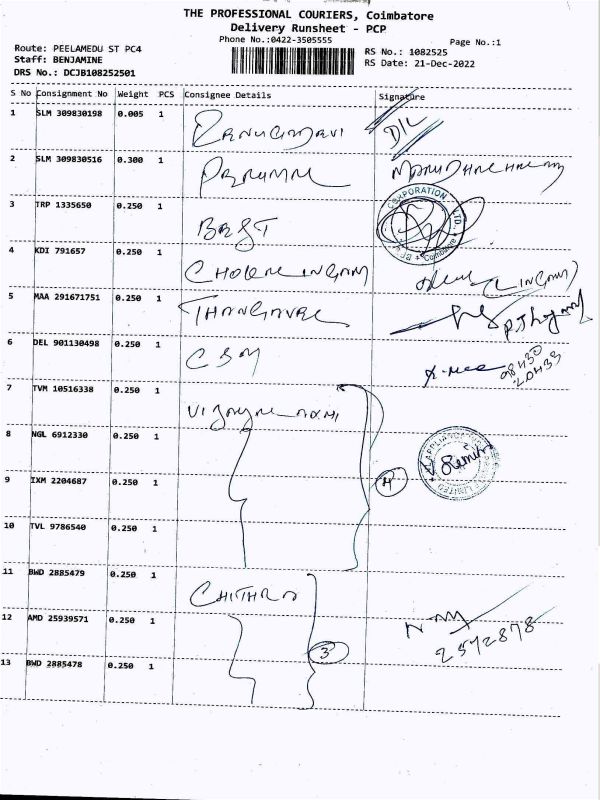 THE PROFESSIONAL COURIERS, Coimbatore
Delivery Runsheet - PCP
Phone No.:0422-3505555
Page No.:1
Route: PEELAMEDU ST PC4
Staff: BENJAMINE
DRS No.: DCJB108252501
RS No.: 1082525
RS Date: 21-Dec-2022
S No Consignment No Weight PCS Consignee Details Signature
1 SLM 309830198 0.005 1 D/L
2 SLM 309830516 0.300 1
3 TRP 1335650 0.250 1 BEST
CORPORATION LTD. Coimbatore
4 KDI 791657 0.250 1 CHOKALINGAM (LINGAM)
5 MAA 291671751 0.250 1 THANGAVEL
6 DEL 901130498 0.250 1 CSM
7 TVM 10516338 0.250 1
8 NGL 6912330 0.250 1
9 IXM 2204687 0.250 1 4
10 TVL 9786540 0.250 1
11 BWD 2885479 0.250 1 CHITHRA
12 AMD 25939571 0.250 1
2572878
13 BWD 2885478 0.250 1 3